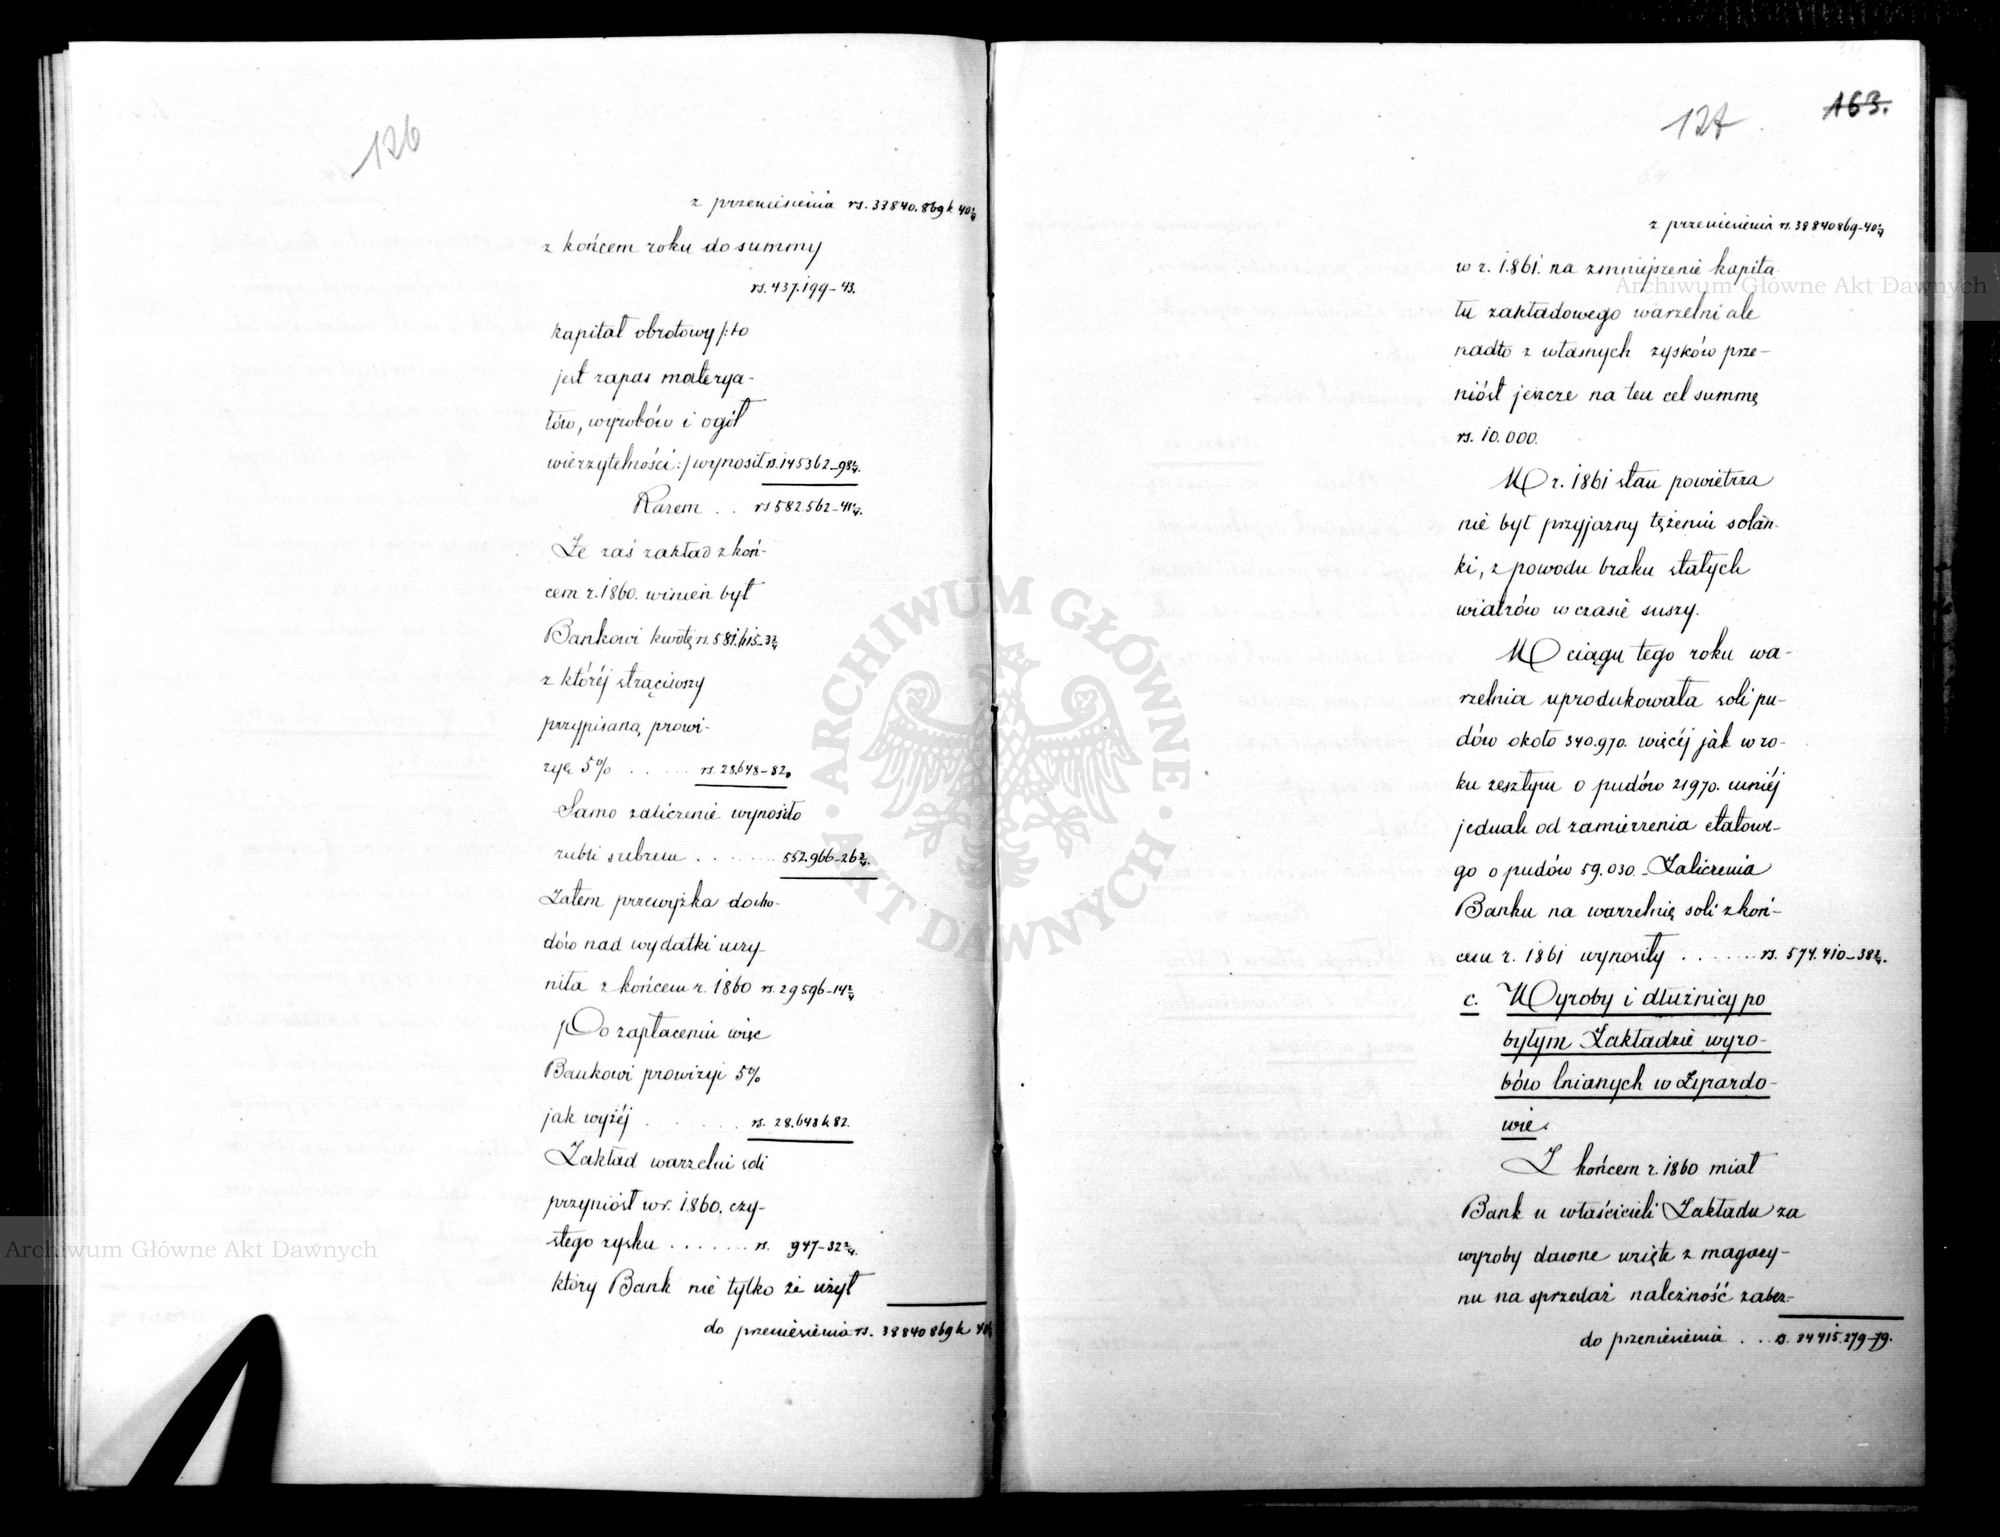 126
z przeniesienia rs. 33840.869 k 40 2/4
z końcem roku do summy
rs. 437.199-43.
kapitał obrotowy /:to
jest zapas materya-
łów, wyrobów i ogół
wierzytelności:/ wynosił rs. 145362-98 2/4.
Razem . . rs 582.562-41 2/4.
Że zaś zakład z koń-
cem r. 1860. winien był
Bankowi kwotę rs. 581.615-3 2/4
z któréj strąciwszy
przypisaną prowi-
zyę 5% . . . . . rs. 28.648-82.
Samo zaliczenie wynosiło
rubli srebrem . . . . . . . 552.966-26 2/4.
Zatem przewyżka docho-
dów nad wydatki uczy
niła z końcem r. 1860 rs. 29596-14 2/4
Po zapłaceniu więc
Bankowi prowizyi 5%
jak wyżéj . . . . . . rs. 28.648 k 82.
Zakład warzelni soli
przyniósł w r. 1860. czy-
stego zysku . . . . . . . rs. 947-32 2/4.
który Bank nie tylko że użył
do przeniesienia rs. 38840869 k 40 2/4
127
163.
z przeniesienia rs. 38840869-40 2/4
w r. 1861. na zmniejszenie kapita
łu zakładowego warzelni ale
nadto z własnych zysków prze-
niósł jeszcze na ten cel summę
rs. 10.000.
W r. 1861 stan powietrza
nie był przyjazny tężeniu solan-
ki, z powodu braku stałych
wiatrów w czasie suszy.
W ciągu tego roku wa-
rzelnia uprodukowała soli pu-
dów około 340.970. więcéj jak w ro-
ku zeszłym o pudów 21970. mniéj
jednak od zamierzenia etatowe-
go o pudów 59.030. Zaliczenia
Banku na warzelnię soli z koń-
cem r. 1861 wynosiły . . . . . . . rs. 574.410-38 2/4.
c. Wyroby i dłużnicy po
byłym Zakładzie wyro-
bów lnianych w Żyrardo-
wie.
Z końcem r. 1860 miał
Bank u właścicieli Zakładu za
wyroby dawne wzięte z magazy-
nu na sprzedaż należność zabez-
do przeniesienia . . . rs. 84415.279-79.
Archiwum Główne Akt Dawnych
Archiwum Główne Akt Dawnych
ARCHIWUM GŁÓWNE AKT DAWNYCH